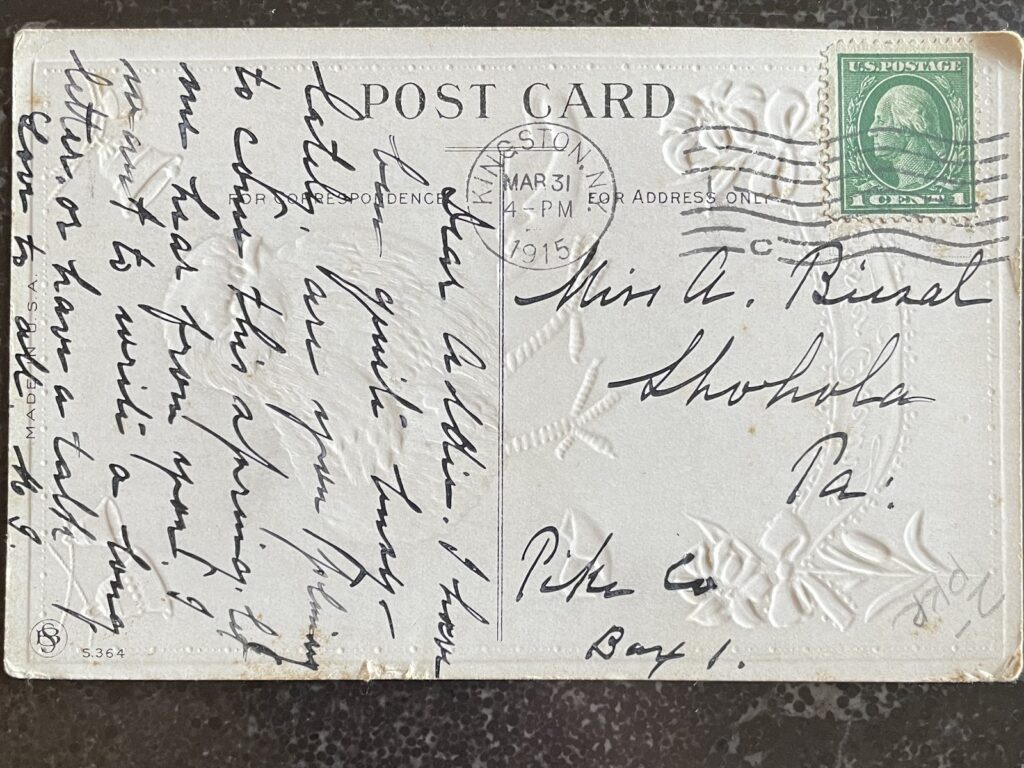 POST CARD
FOR CORRESPONDENCE
FOR ADDRESS ONLY
U.S. POSTAGE
1 CENT 1
KINGSTON, N.Y.
MAR 31
4-PM
1915
C
Miss A.
Shohola
Pa.
Pike Co
Box 1.
Dear Addie. I have
been quite busy-
lately, are you planning
to come this spring, let
me hear from you! I
meant to write a long
letter, or have a talk
Love to all. M. G.
MADE IN U.S.A.
S.364